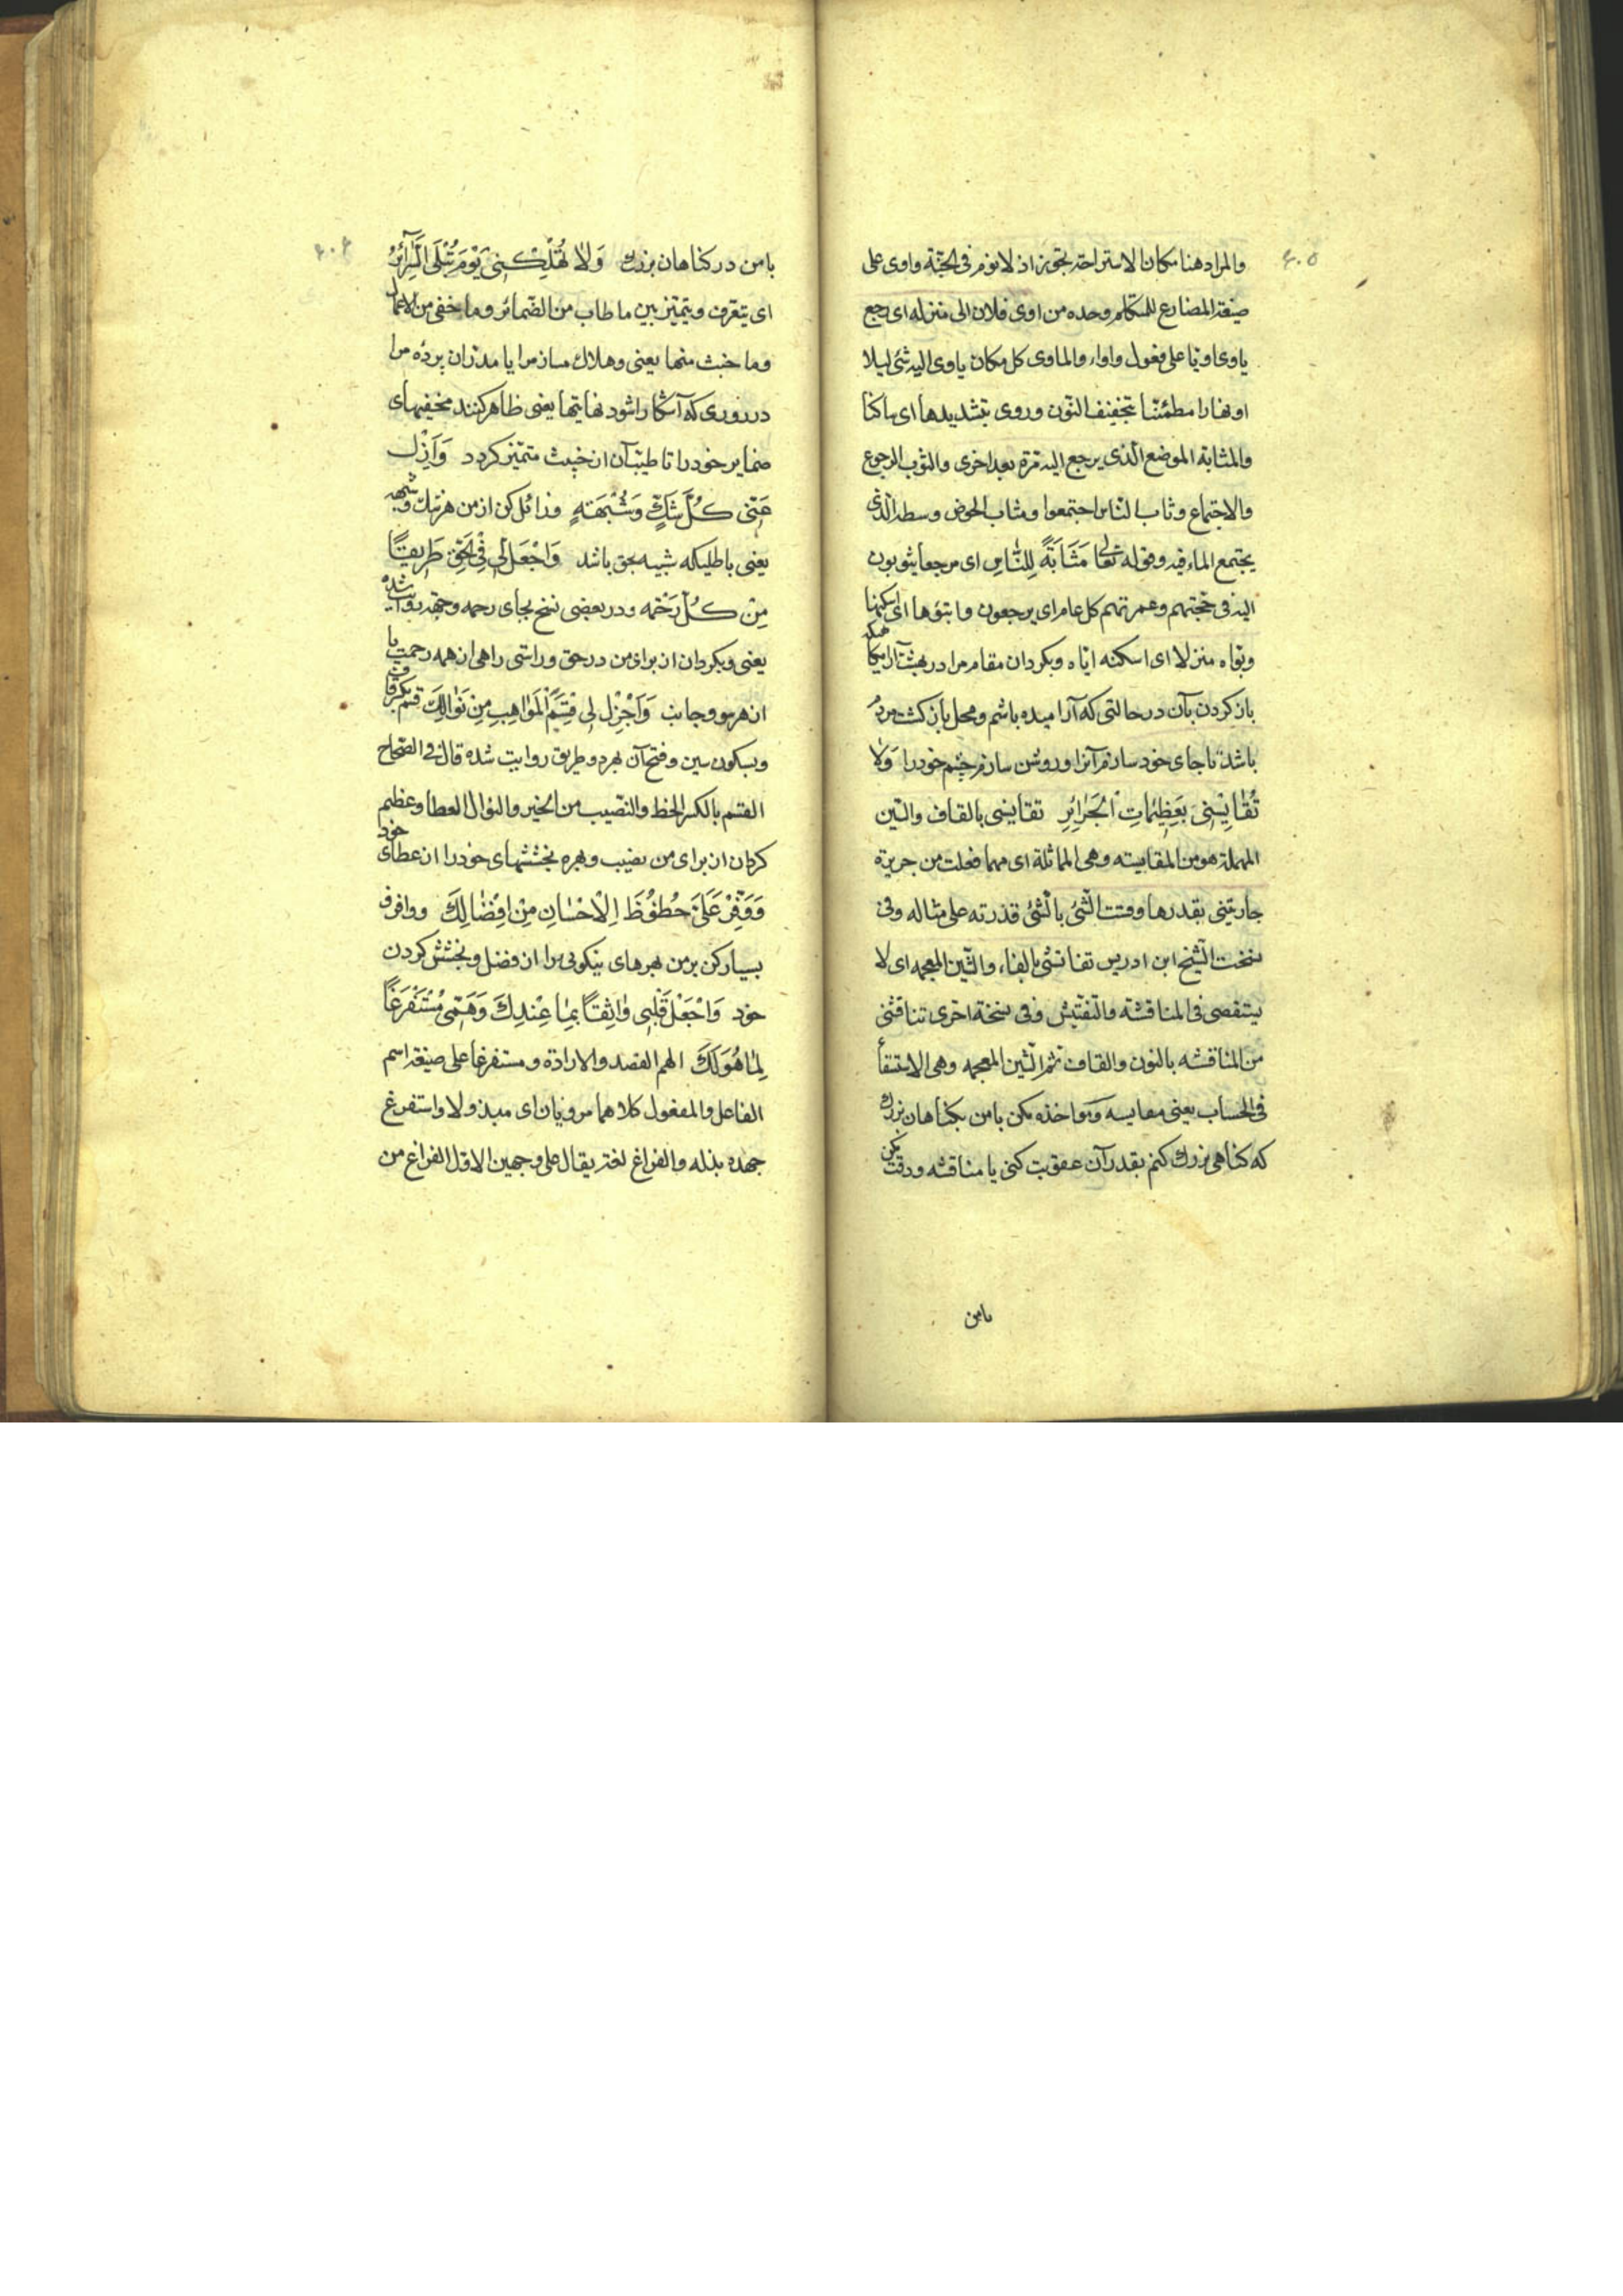 ۴۰۵
والمراد هنا مكان الاستراحة تجوز اذ لا نوم فى الجنّة واوى على
صيغة المضارع للمتكلم وحده من اوى فلان الى منزله اى رجع
ياوى اويا على فعول واواء والماوى كل مكان ياوى اليه شئ ليلا
او نهارا مطمئنّا بتخفيف النّون وروى بتشديدها اى ساكنا
والمثابة الموضع الّذى يرجع اليه مرّة بعد اخرى والثوب الرجوع
والاجتماع وثاب النّاس اجتمعوا ومثاب الحوض وسطه الّذى
يجتمع الماء فيه وقوله تعالى مَثَابَةً لِلنَّاسِ اى مرجعا يثوبون
اليه فى حجّتهم وعمرتهم كل عام اى يرجعون واتبوّها اى اسكنها
وبوّاه منزلا اى اسكنه ايّاه وبكردان مقام مرا در بهشت
باز كردن بآن در حالتى كه آراميده باشم ومحل باز كشت مردم
باشد تا جاى خود سازم آنرا وروشن سازم چشم خودرا وَلا
تُقٰايِسْنِى بِعَظِيمٰاتِ الْجَرٰائِرِ تقايسنى بالقاف والسّين
المهملة هو من المقايسة وهى المماثلة اى مهما فعلت من جريرة
جازيتنى بقدرها وقست الشّئ بالشّئ قدرته على مثاله وفى
نسخت الشّيخ ابن ادريس تفانشنى بالفاء والشّين المعجمة اى لا
يستقصى فى المناقشة والتّفتيش وفى نسخة اخرى تناقشنى
من المناقشه بالنون والقاف ثم الشّين المعجمه وهى الاستقصا
فى الحساب يعنى مقايسه ومواخذه مكن با من بكناهان بزرك
كه كناهى بزرك كنم بقدر آن عقوبت كنى يا مناقشه ودقت مكن
بامن
۴۰۶
با من در كناهان بزرك وَلاٰ تُهْلِكْنِى يَوْمَ تُبْلَى السَّرٰآئِرُ
اى يتعرّف ويتميّز بين ما طاب من الضّمائر وما خفى من الاعمال
وما خبث منها يعنى وهلاك مساز مرا يا مدران پرده مرا
در روزى كه آشكارا شود نهايتها يعنى ظاهر كنند مخفيهاى
ضماير خودرا تا طيّب آن از خبيث متميّز كردد وَاَزِلْ
عَنّى كُلَّ شَكٍّ وَشُبْهَةٍ وزائل كن از من هر شك وشبهه
يعنى باطليكه شبيه بحق باشد وَاجْعَلْ لِى فِى الْحَقِّ طَرِيقًا
مِنْ كُلِّ رَحْمَه ودر بعضى نسخ بجاى رحمه وجهه روايت شده
يعنى وبكردان از براى من در حق وراستى راهى از همه رحمت يا
از هر سو وجانب وَاَجْزِلْ لِى قِسَمَ الْمَوٰاهِبِ مِنْ نَوٰالِكَ قسم بكسر قاف
وبسكون سين وفتح آن بهر دو طريق روايت شده قال فى الصّحاح
القسم بالكسر الحظ والنّصيب من الخير والنوال العطا وعظيم
كردان از براى من نصيب وبهره بخششهاى خودرا از عطاى خود
وَوَفِّرْ عَلَىَّ حُظُوظَ الْاِحْسٰانِ مِنْ اِفْضٰالِكَ ووافر و
بسيار كن بر من بهرهاى نيكوئى را از فضل وبخشش كردن
خود وَاجْعَلْ قَلْبِى وٰاثِقًا بِمٰا عِنْدِكَ وَهَمّى مُسْتَفْرَغًا
لِمٰا هُوَ لَكَ الهم القصد والارادة ومستفرغا على صيغة اسم
الفاعل والمفعول كلاهما مرويان اى مبذولا واستفرغ
جهده بذله والفراغ لغة يقال على وجهين الاوّل الفراغ من